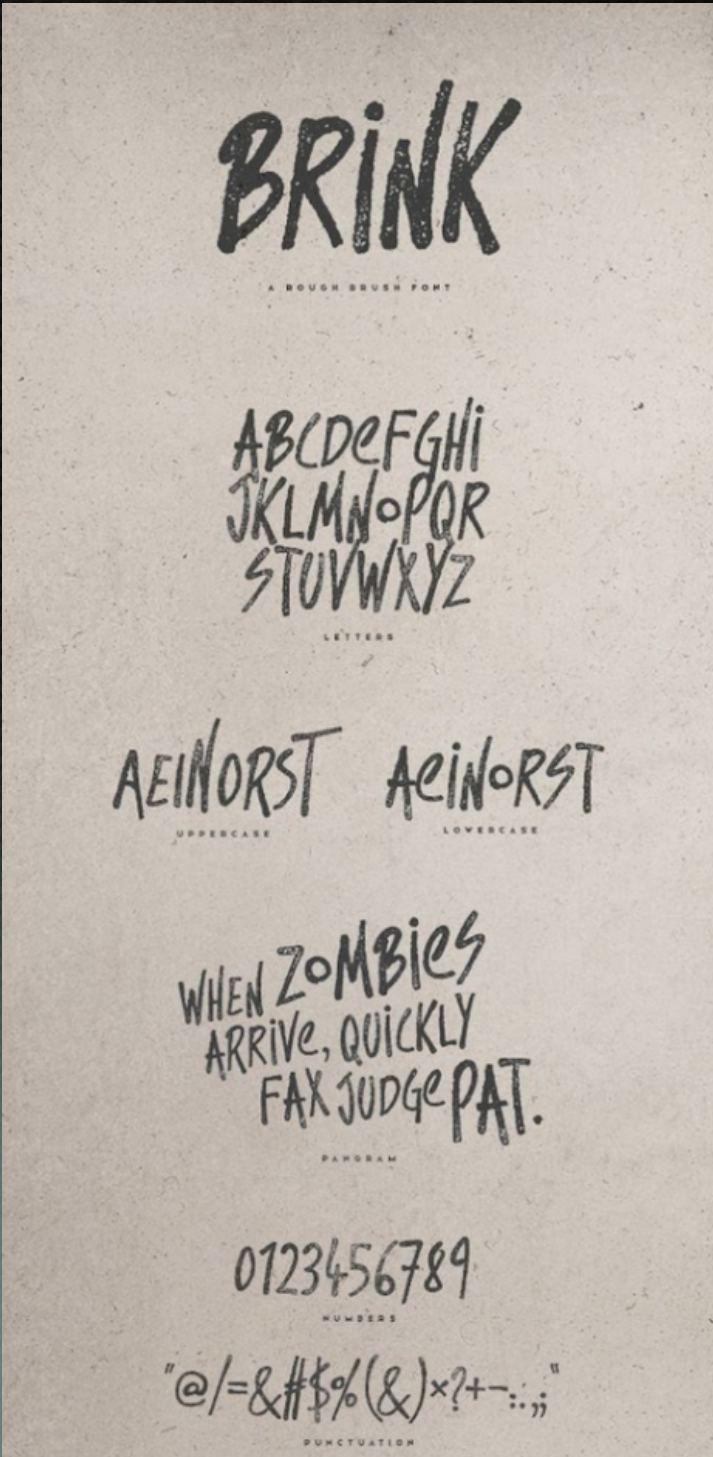 BRiNK
A ROUGH BRUSH FONT
ABCDeFGHi
JKLMNoPQR
STUVWXYZ
LETTERS
AEINORST AeiNoRST
UPPERCASE LOWERCASE
WHEN ZoMBieS
ARRiVe, QUiCKLY
FAX JUDGe PAT.
PANGRAM
0123456789
NUMBERS
"@/=&#$%(&)×?+-:.,;"
PUNCTUATION